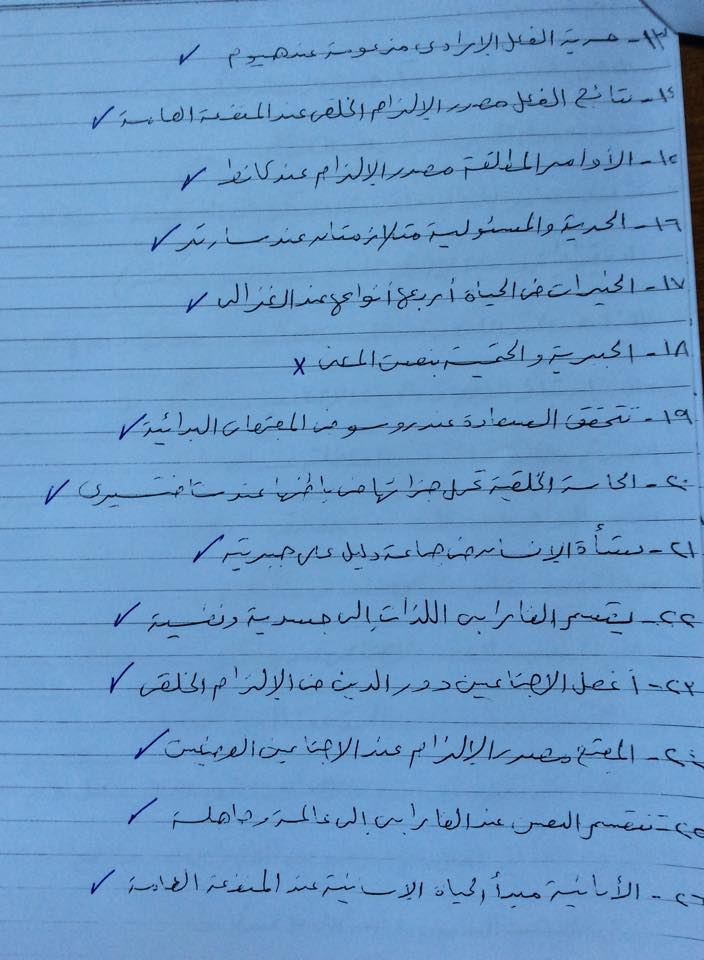 ١٣- حرية الفعل الإرادى مزعومة عند هيوم ✓
١٤- نتائج الفعل مصدر الإلزام الخلقى عند المنفعة العامة ✓
١٥- الأوامر المطلقة مصدر الإلزام عند كانط ✓
١٦- الحرية والمسئولية متلازمتان عند سارتر ✓
١٧- الخيرات فى الحياة أربعة أنواعها عند الغزالى ✓
١٨- الجبرية والحتمية بنفس المعنى x
١٩- تتحقق السعادة عند روسو فى المجتمعات البدائية ✓
٢٠- الحاسة الخلقية تحمل جزاءتها فى باطنها عند شافتسبرى ✓
٢١- نشأة الإنسان فى جماعة دليل على جبريته ✓
٢٢- يقسم الفارابى اللذات إلى جسدية ونفسية ✓
٢٣- أغفل الاجتماعين دور الدين فى الإلزام الخلقى ✓
٢٤- المجتمع مصدر الإلزام عند الاجتماعين الوضعين ✓
٢٥- تنقسم النفس عند الفارابى إلى عالمة وجاهلة ✓
٢٦- الأنانية مبدأ الحياة الإنسانية عند المنفعة العامة ✓